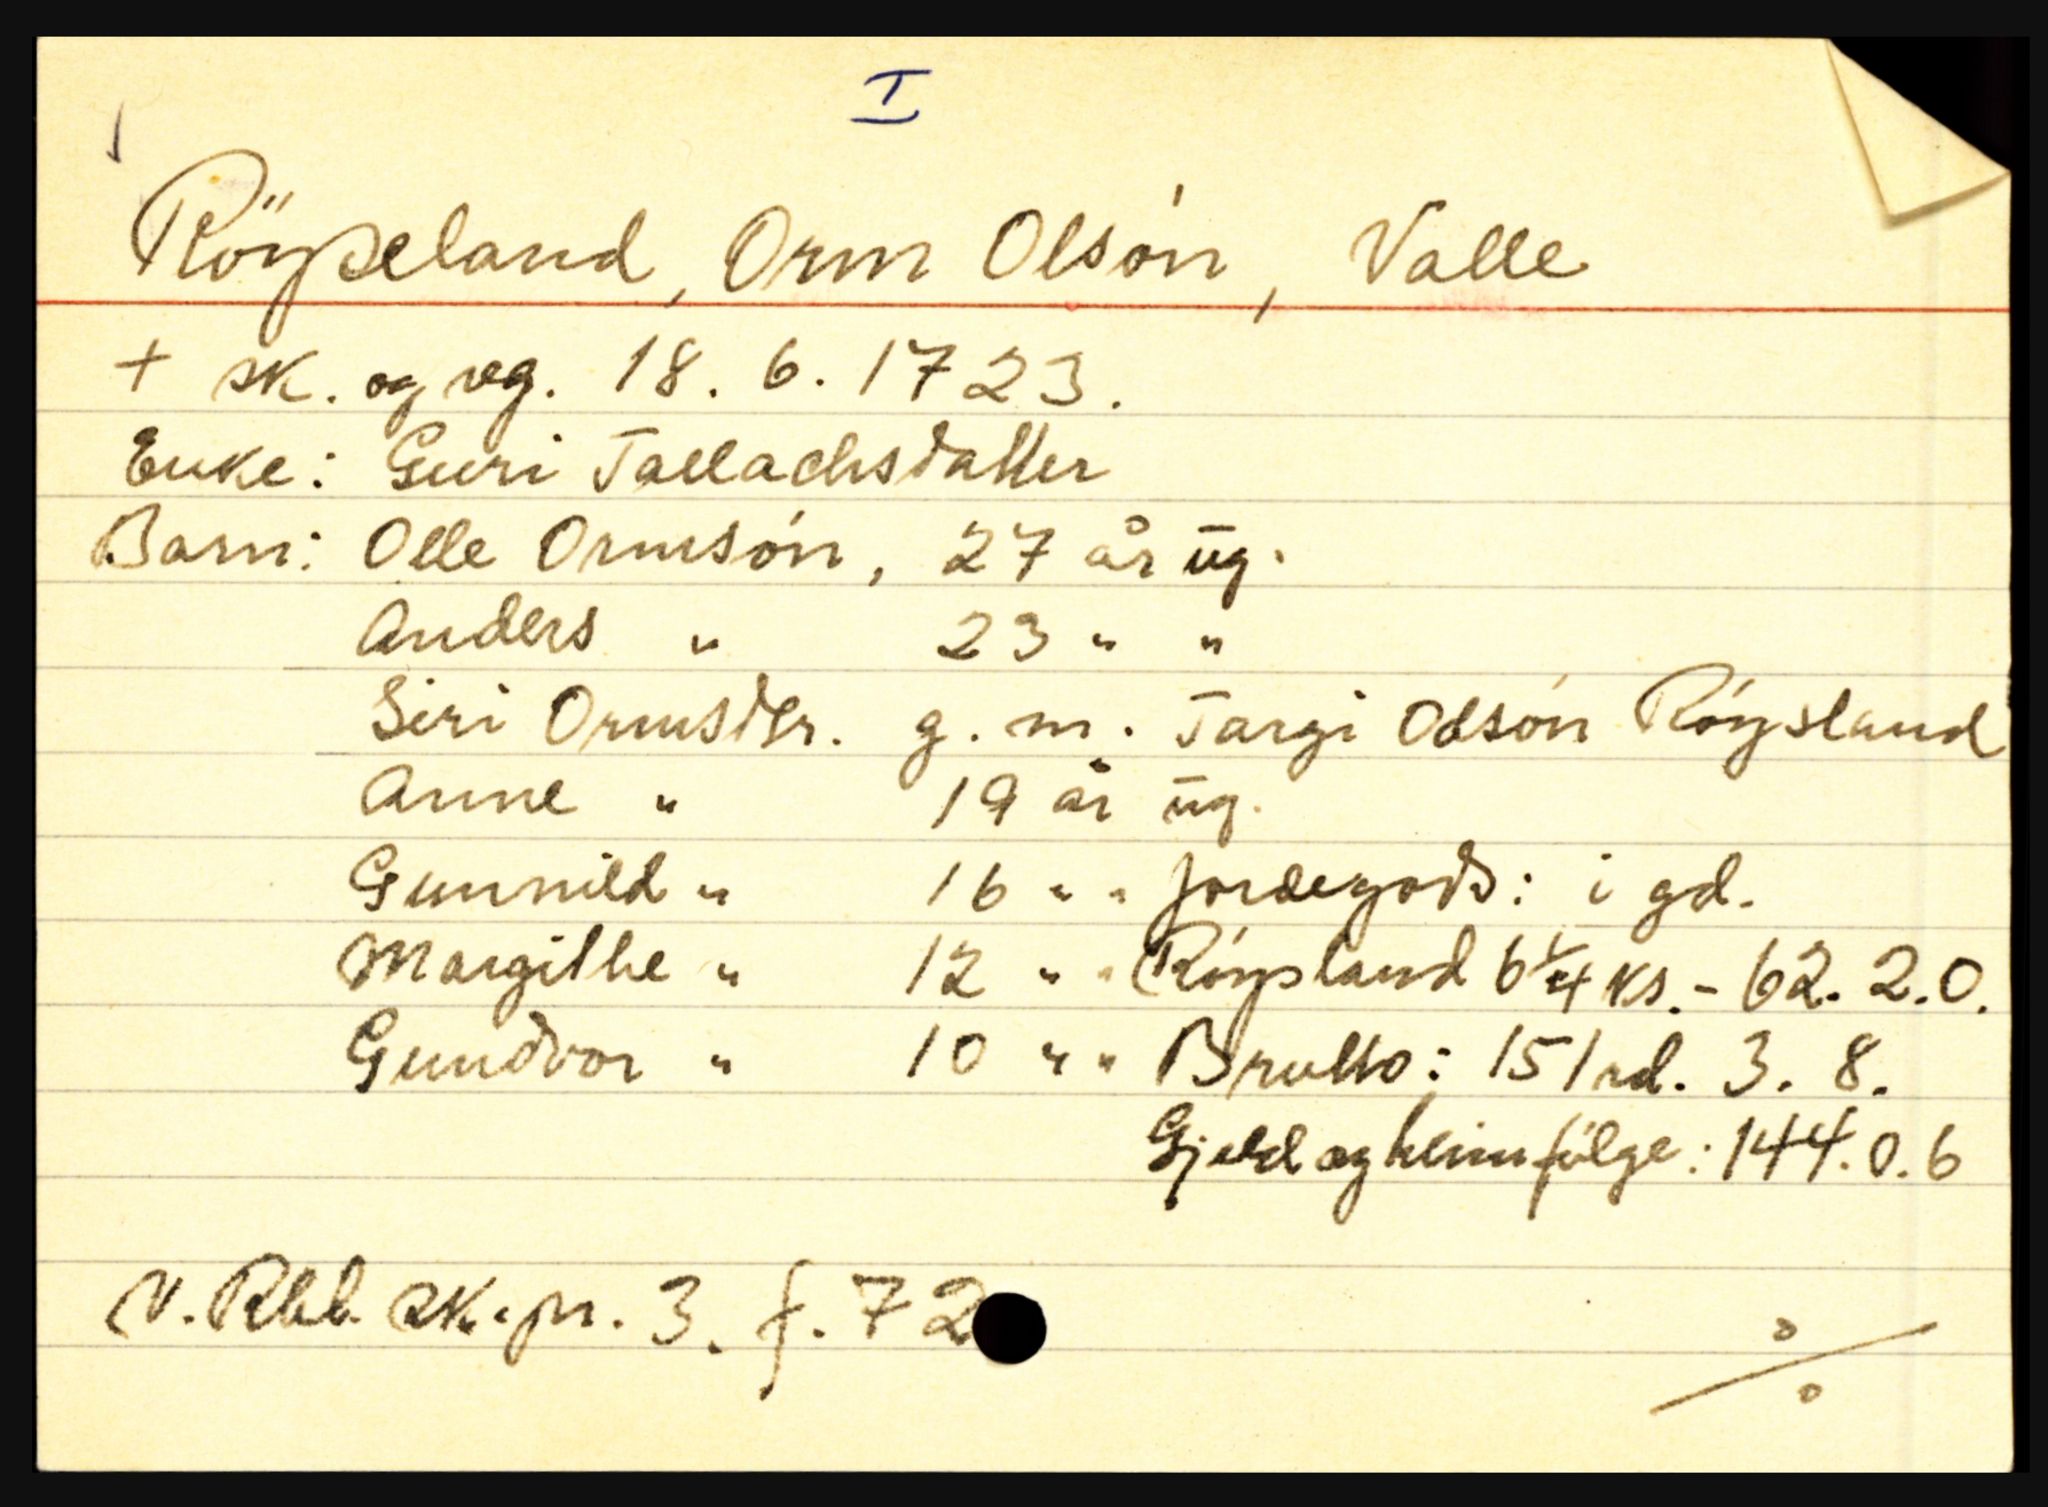 I
Röyseland, Orm Olsón, Valle
+ sk. og reg. 18. 6. 1723.
Enke: Guri Tallachsdatter
Barn: Olle Ormsón, 27 år ūg.
Anders " 23 " "
Siri Ormsdtr. g. m. Targi Olsón Róysland
Anne " 19 år ūg.
Gunnild " 16 " " Jordegods: i gd.
Margithe " 12 " " Róysland 6 1/4 ks. - 62. 2. 0.
Gundvor " 10 " " Brutto: 151 rd. 3. 8.
Gjeld og heimfölge: 144. 0. 6
N. Rbl. sk. pr. 3. f. 72
%